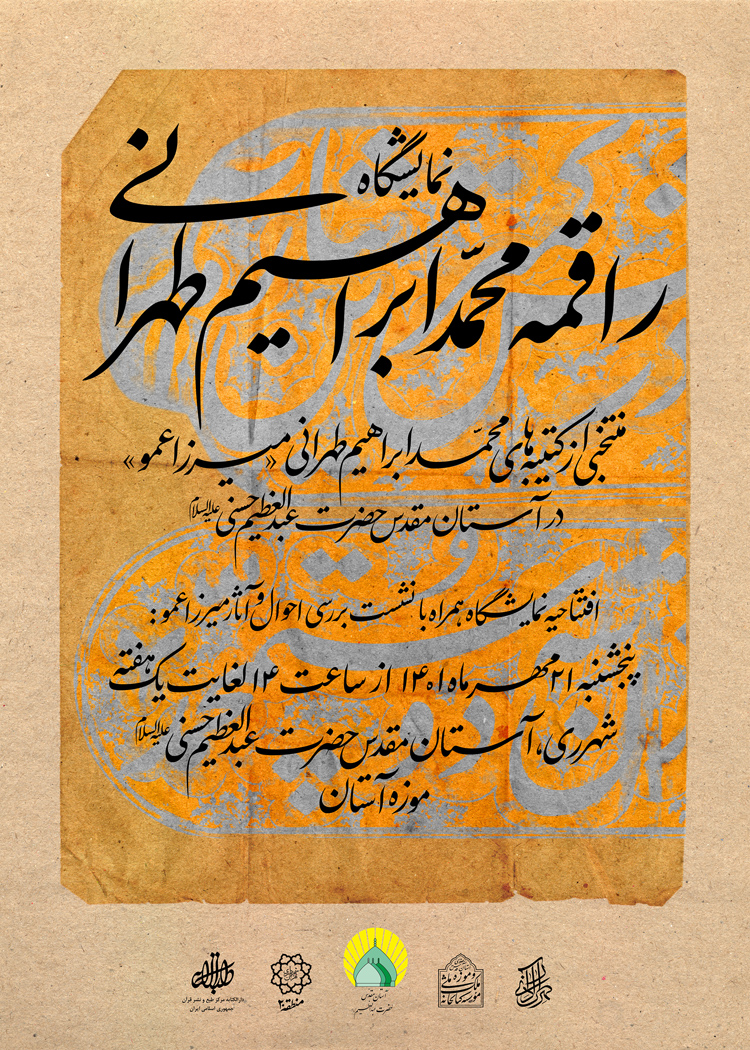 نمایشگاه
راقمه محمّد ابراهیم طهرانی
منتخبی از کتیبه‌های محمّد ابراهیم طهرانی «میرزا عمو»
در آستان مقدس حضرت عبدالعظیم حسنی علیه‌السلام
افتتاحیه نمایشگاه همراه با نشست بررسی احوال و آثار میرزا عمو:
پنجشنبه ۲۱ مهر ماه ۱۴۰۱ از ساعت ۱۴ لغایت یک هفته
شهرری، آستان مقدس حضرت عبدالعظیم حسنی علیه‌السلام
موزه آستان
آستان مقدس
حضرت عبدالعظیم
منطقه ۲۰
دارالکتابه مرکز طبع و نشر قرآن
جمهوری اسلامی ایران